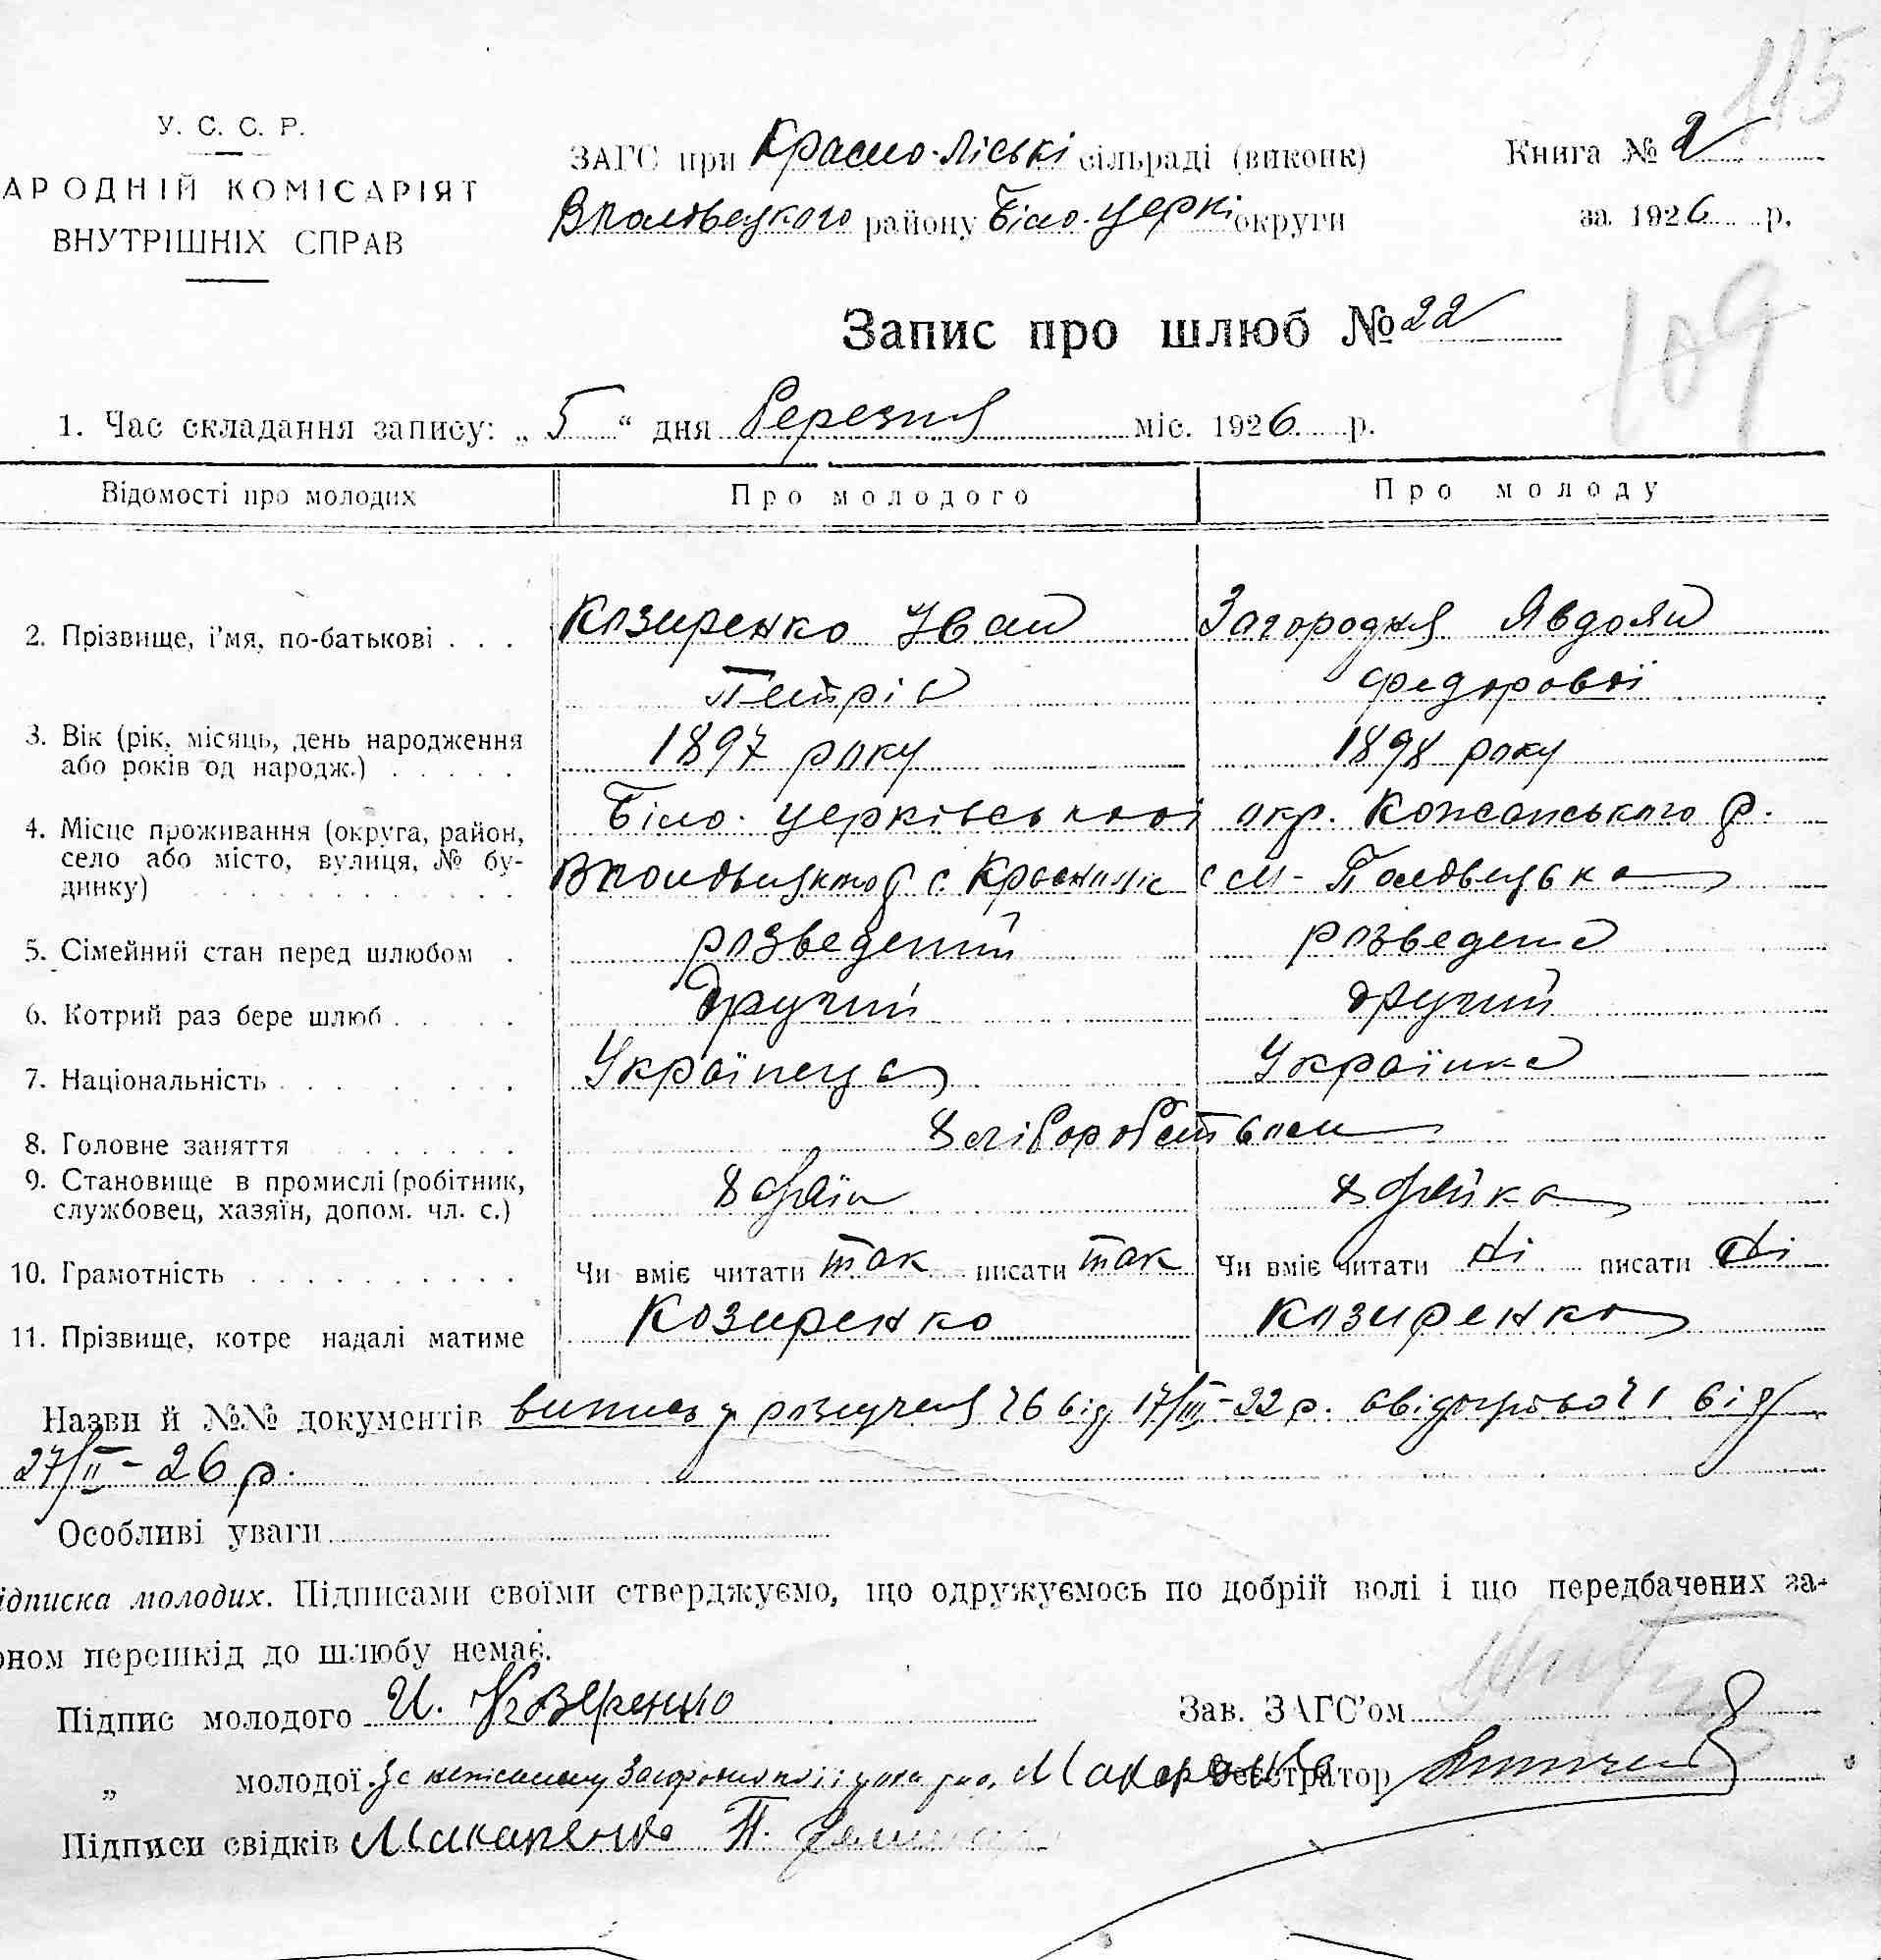 115
У. С. С. Р.
АРОДНІЙ КОМІСАРІЯТ
ВНУТРІШНІХ СПРАВ
ЗАГС при Красно-Ліські сільраді (виконк)
Вполовецкого району Біло-Церкі округи
Книга № 2
за 1926 р.
Запис про шлюб № 22
109
1. Час складання запису: „ 5 “ дня Березня міс. 1926 р.
Відомості про молодих Про молодого Про молоду
2. Прізвище, і'мя, по-батькові . . . Козиренко Іван Загородня Явдоха
Петрів Федорової
3. Вік (рік, місяць, день народження 1897 року 1898 року
або років од народж.) . . . . .
4. Місце проживання (округа, район, Біло-Церківської окр. Кожанського р.
село або місто, вулиця, № бу- с. Краснолис с м-Половецька
динку) . . . . . . . . . . . .
5. Сімейний стан перед шлюбом . розведений розведена
6. Котрий раз бере шлюб . . . . . другий другий
7. Національність . . . . . . . . Українець Українка
8. Головне заняття . . . . . . . Хліборобством
9. Становище в промислі (робітник, Хазяїн Хазяйка
службовец, хазяїн, допом. чл. с.)
10. Грамотність . . . . . . . . . . Чи вміє читати так писати так Чи вміє читати ні писати ні
11. Прізвище, котре надалі матиме Козиренко Козиренко
Назви й №№ документів випись 26 від 17/III-22 р. 21 від
27/II-26 р.
Особливі уваги
ідписка молодих. Підписами своїми стверджуємо, що одружуємось по добрій волі і що передбачених за-
оном перешкід до шлюбу немає.
Підпис молодого И. Козеренко Зав. ЗАГС'ом
„ молодої За Макаренко Реєстратор
Підписи свідків Макаренко П.